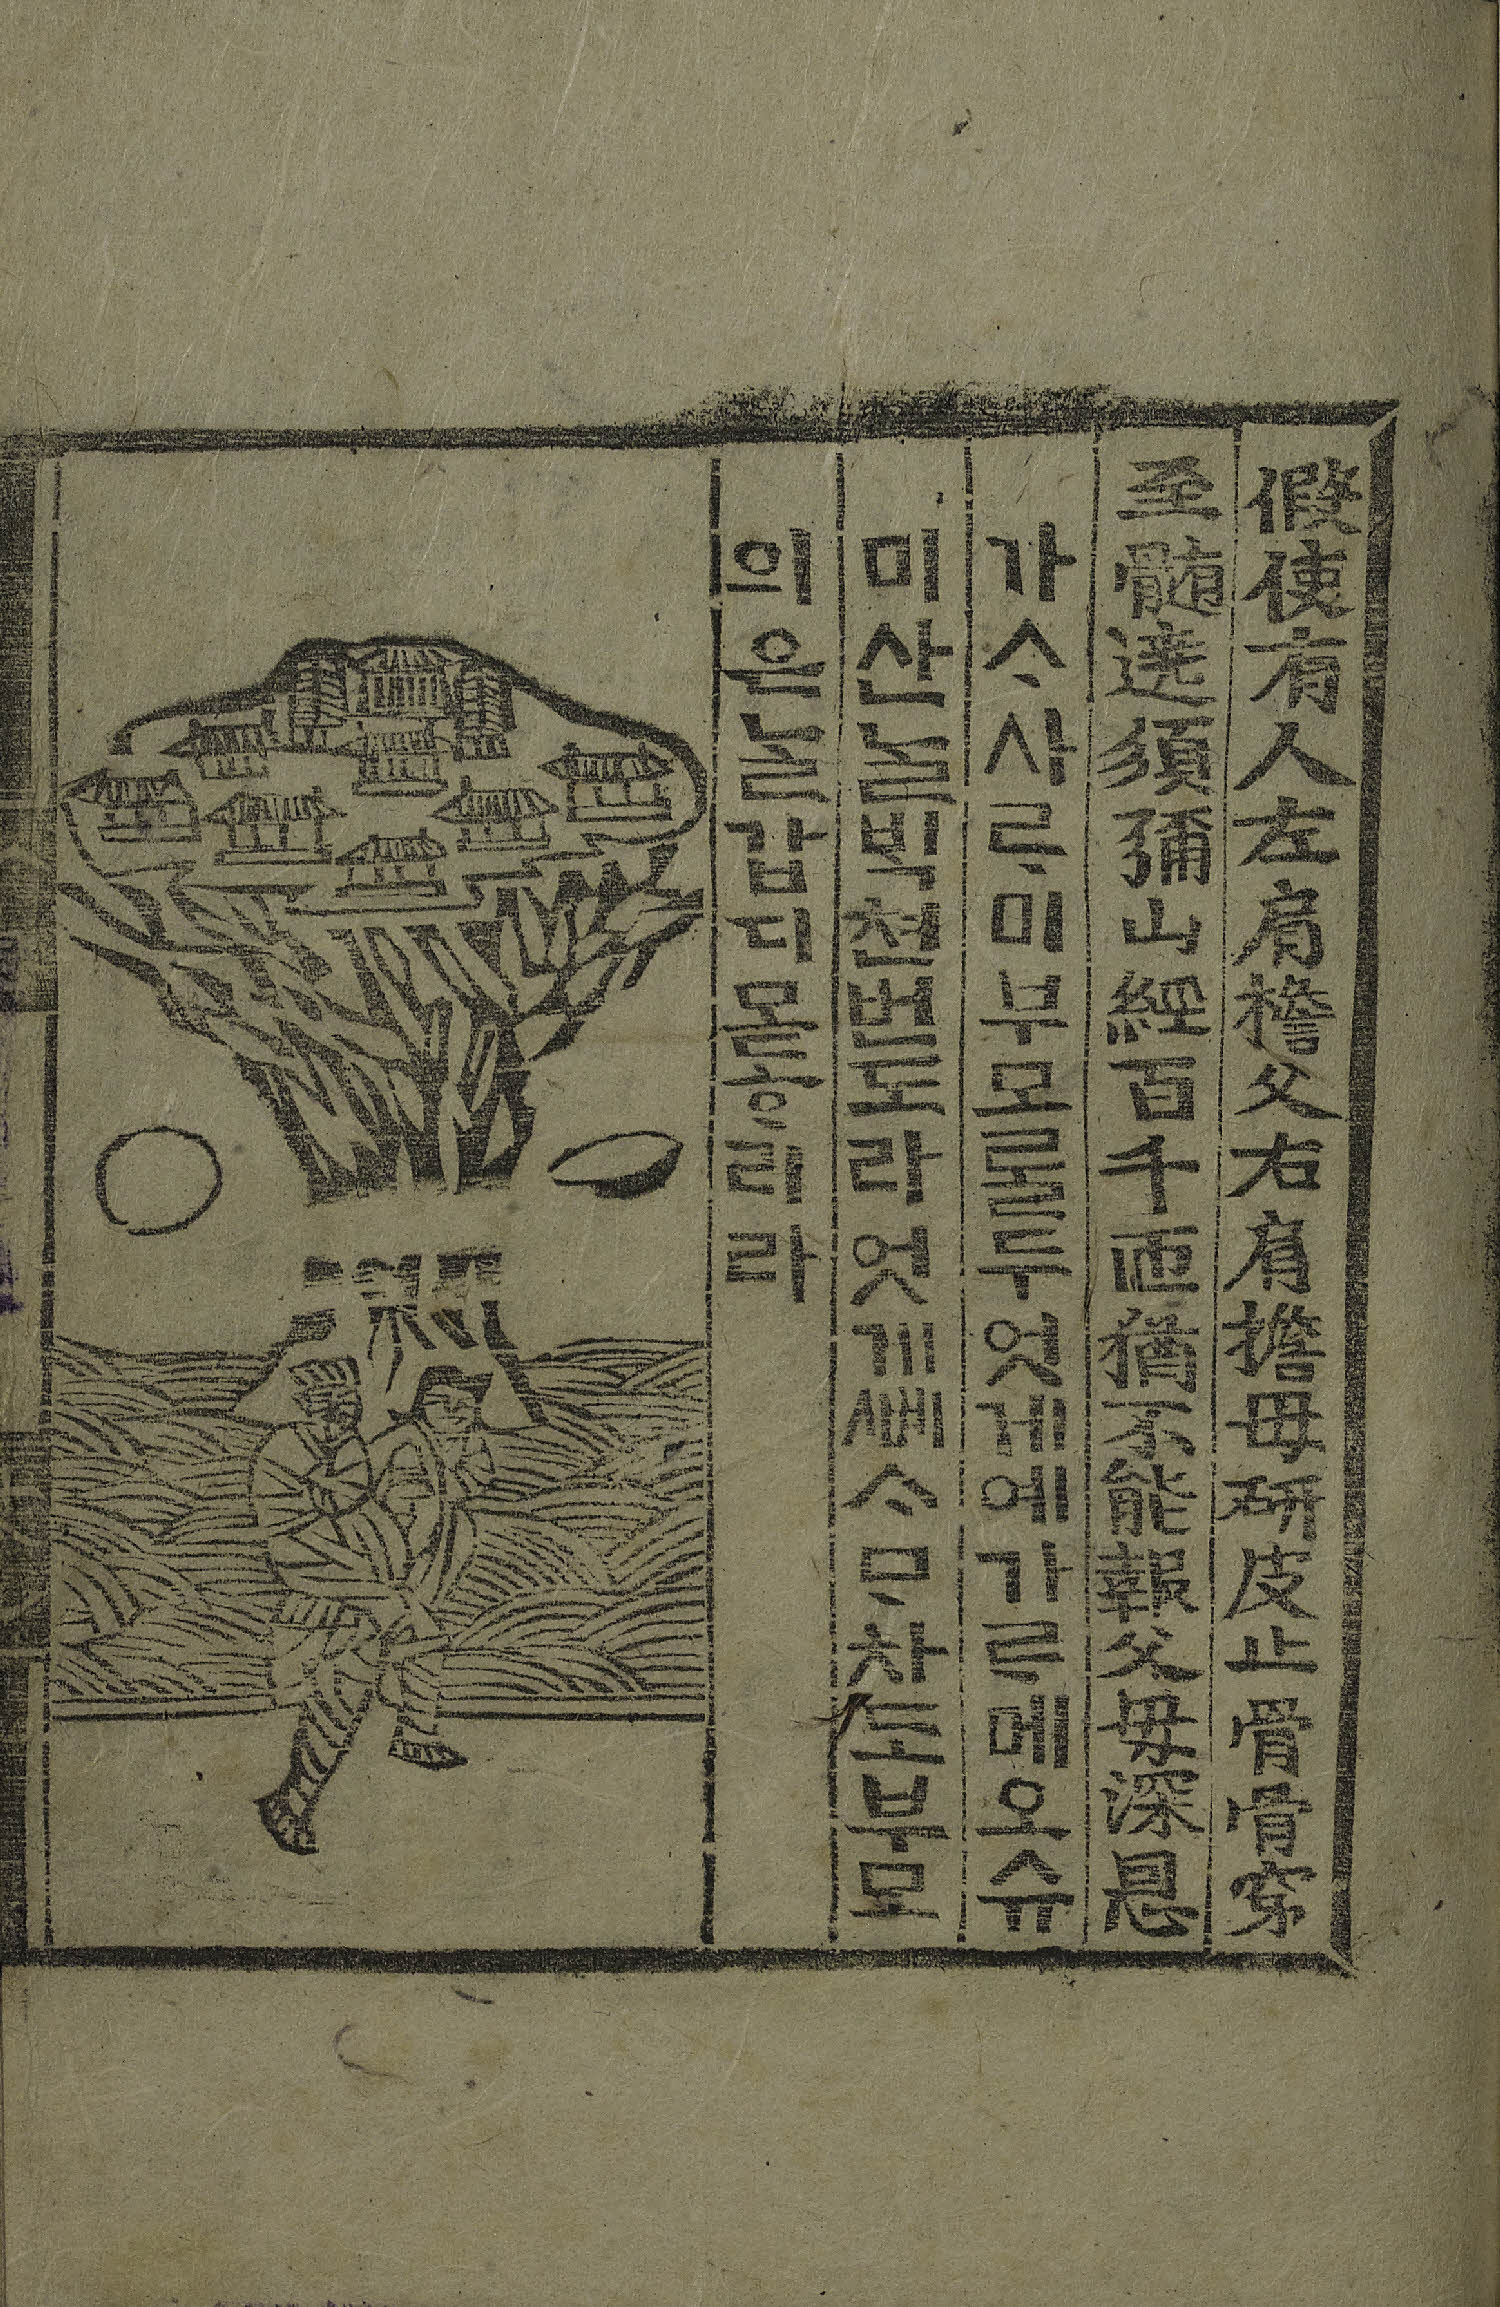 假使有人左肩擔父右肩擔母研皮止骨骨穿
至髓遶須彌山經百千匝猶不能報父母深恩
가ᄉᆞ사ᄅᆞ미부모롤두엇게예가ᄅᆞ메오슈
미산놀ᄇᆡᆨ쳔번도라엇게ᄲᅦᄉᆞᄆᆞ차도부모
의은놀갑디몯ᄒᆞ리라